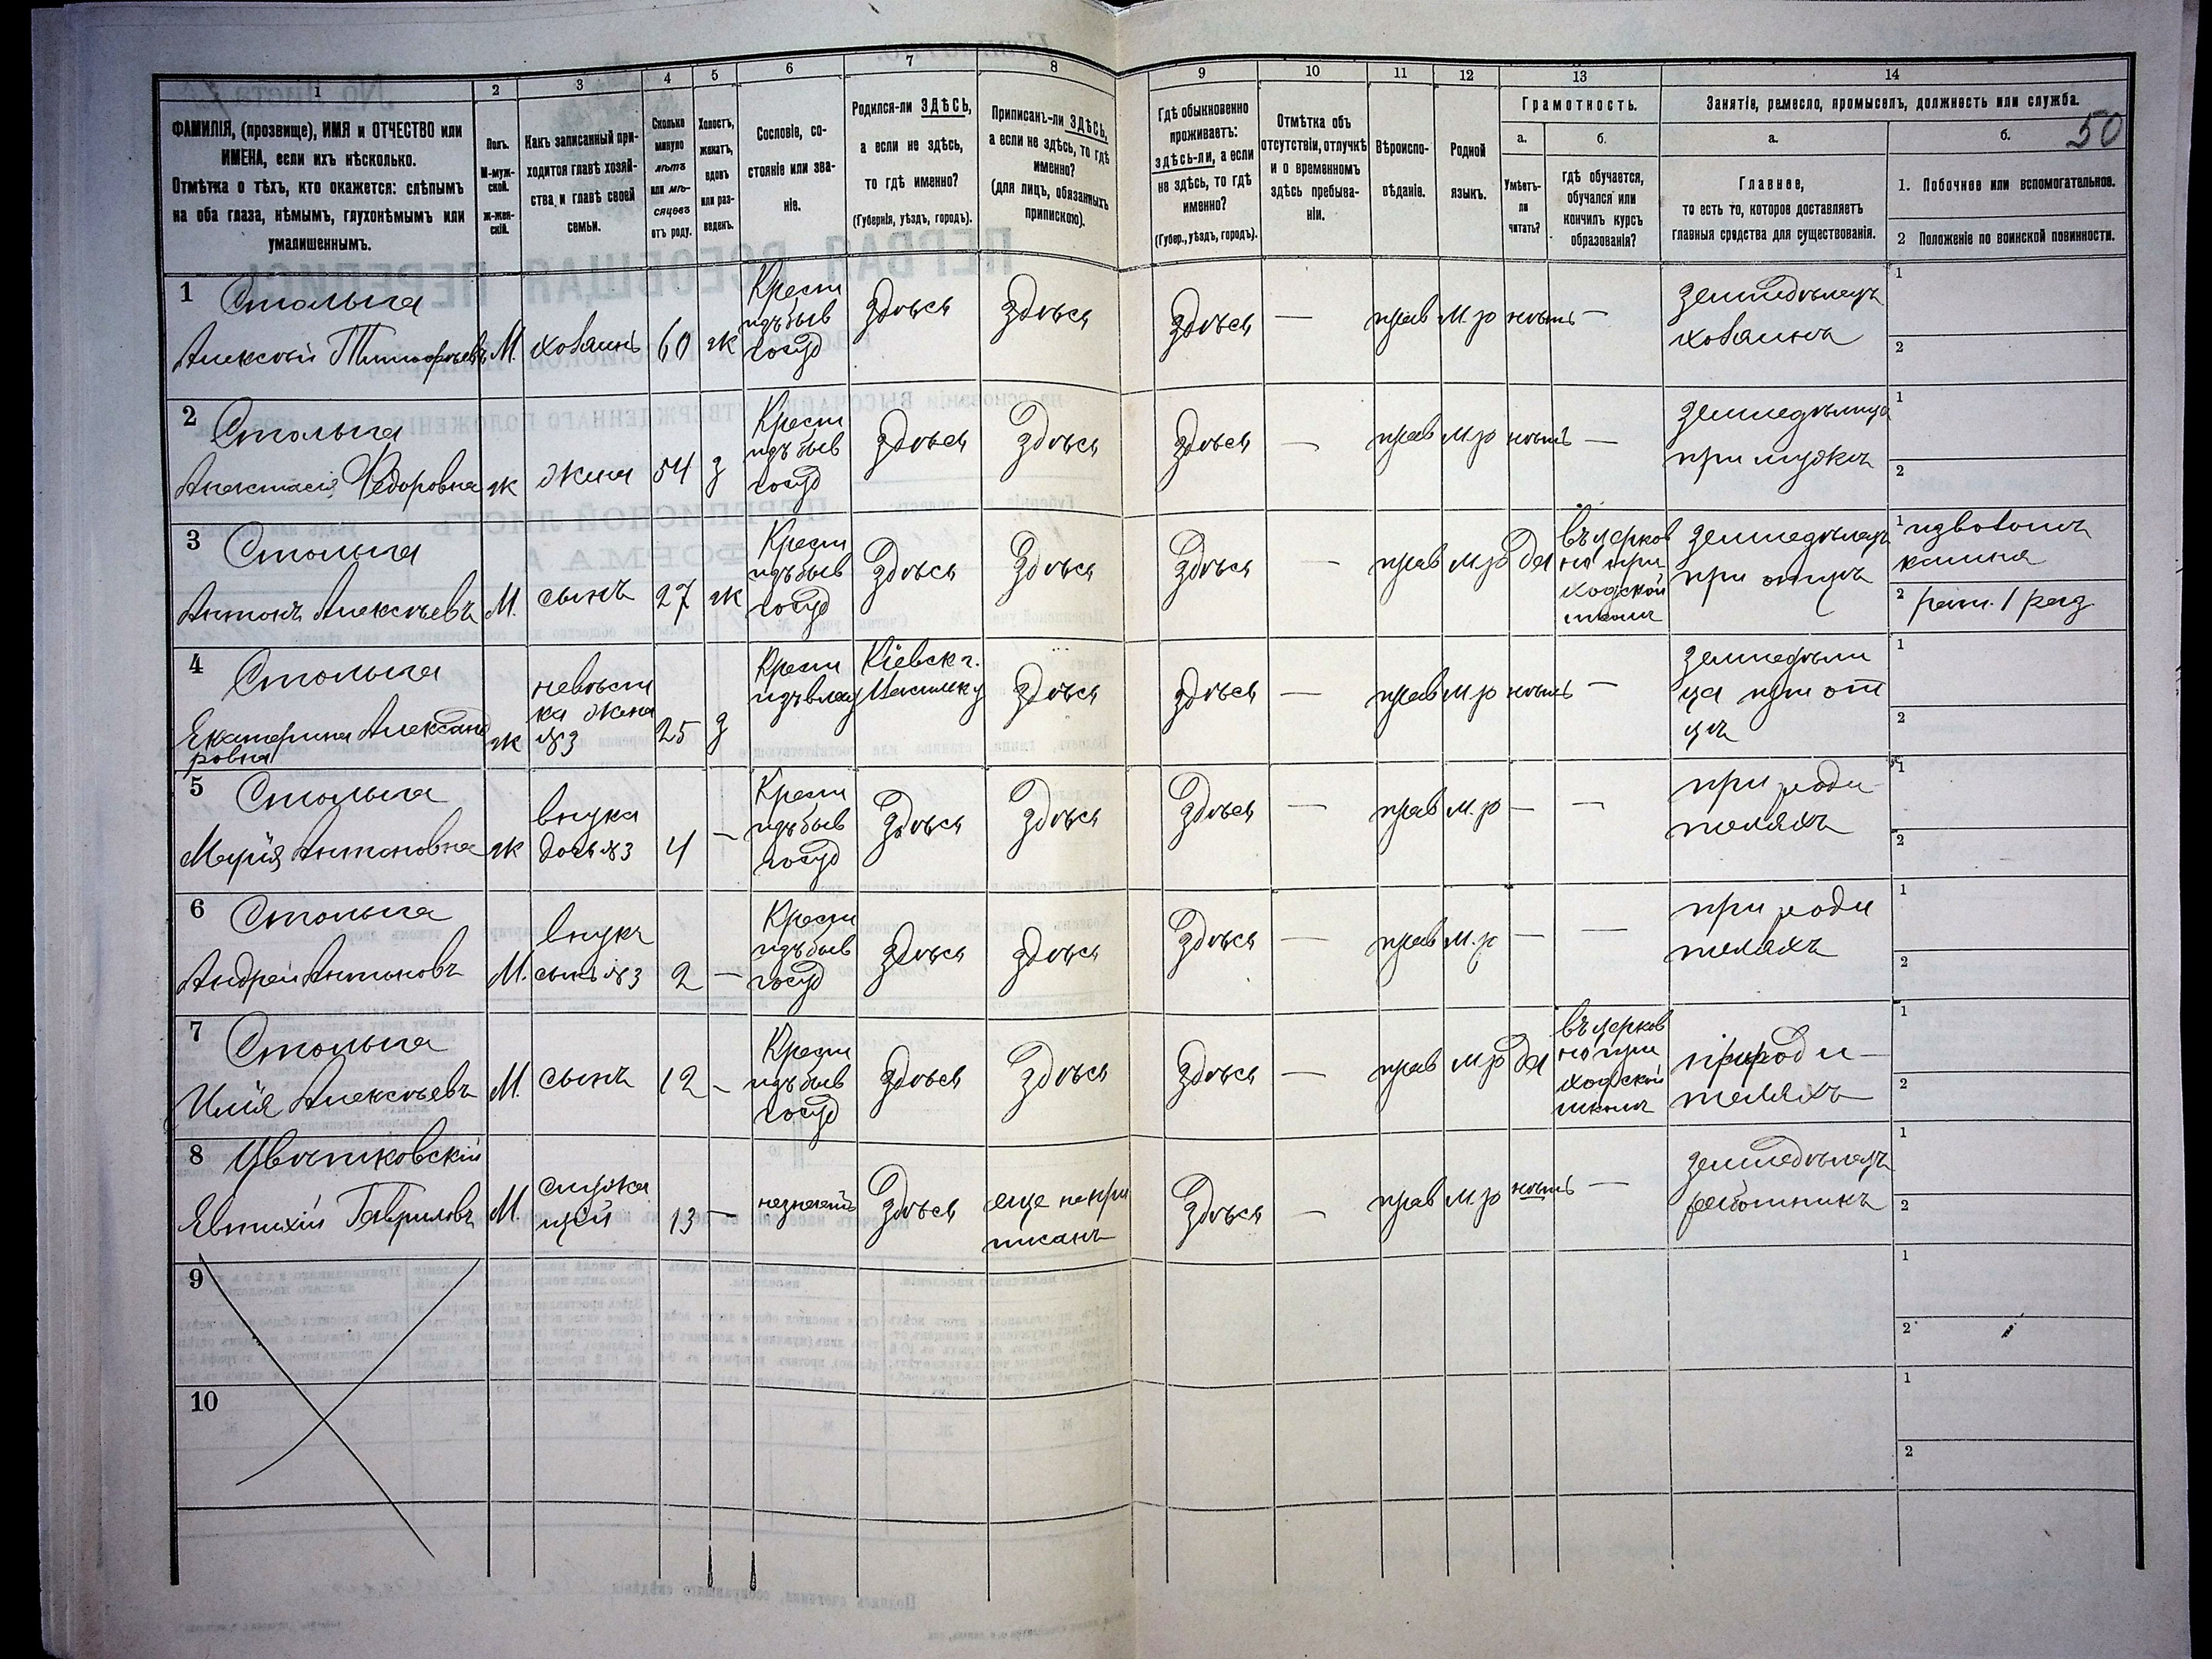 1
2
3
4
5
6
7
8
9
10
11
12
13
14
ФАМИЛІЯ, (прозвище), ИМЯ и ОТЧЕСТВО или
ИМЕНА, если ихъ нѣсколько.
Отмѣтка о тѣхъ, кто окажется: слѣпымъ
на оба глаза, нѣмымъ, глухонѣмымъ или
умалишеннымъ.
Полъ.
М-муж-
ской.
Ж-жен-
скій.
Какъ записанный при-
ходится главѣ хозяй-
ства и главѣ своей
семьи.
Сколько
минуло
лѣтъ
или мѣ-
сяцевъ
отъ роду.
Холостъ,
женатъ,
вдовъ
или раз-
веденъ.
Сословіе, со-
стояніе или зва-
ніе.
Родился-ли ЗДѢСЬ,
а если не здѣсь,
то гдѣ именно?
(Губернія, уѣздъ, городъ).
Приписанъ-ли ЗДѢСЬ,
а если не здѣсь, то гдѣ
именно?
(для лицъ, обязанныхъ
припискою).
Гдѣ обыкновенно
проживаетъ:
здѣсь-ли, а если
не здѣсь, то гдѣ
именно?
(Губер., уѣздъ, городъ).
Отмѣтка объ
отсутствіи, отлучкѣ
и о временномъ
здѣсь пребыва-
ніи.
Вѣроиспо-
вѣданіе.
Родной
языкъ.
Грамотность.
а.
Умѣетъ-
ли
читать?
б.
гдѣ обучается,
обучался или
кончилъ курсъ
образованія?
Занятіе, ремесло, промыселъ, должность или служба.
50
а.
Главное,
то есть то, которое доставляетъ
главныя средства для существованія.
б.
1. Побочное или вспомогательное.
2 Положеніе по воинской повинности.
1
Алексѣй Тимофѣевъ
М.
хозаинъ
60
ж
Крест
изъ быв
госуд
здѣсь
здѣсь
здѣсь
—
прав
м. р
нѣтъ
—
земледѣлецъ
хозаинъ
1
2
2
Анастасія Федоровна
ж
жена
54
з
Крест
изъ быв
госуд
здѣсь
здѣсь
здѣсь
—
прав
м. р
нѣтъ
—
земледѣлица
при мужѣ
1
2
3
Антонъ Алексѣевъ
М.
сынъ
27
ж
Крест
изъ быв
госуд
здѣсь
здѣсь
здѣсь
—
прав
м. р
да
въ церков
но при
ходской
школѣ
земледѣлецъ
при отцѣ
1
2
4
Екатерина Александ
ровна
ж
невѣст
ка жена
№3
25
з
Крест
Кіевск г.
здѣсь
здѣсь
—
прав
м. р
нѣтъ
—
земледѣли
ца при от
цѣ
1
2
5
Марія Антоновна
ж
внука
дочь №3
4
—
Крест
изъ быв
госуд
здѣсь
здѣсь
здѣсь
—
прав
м. р
—
—
при роди
теляхъ
1
2
6
Андрей Антоновъ
М.
внукъ
сынъ №3
2
—
Крест
изъ быв
госуд
здѣсь
здѣсь
здѣсь
—
прав
м. р
—
—
при роди
теляхъ
1
2
7
Илія Алексѣевъ
М.
сынъ
12
—
Крест
изъ быв
госуд
здѣсь
здѣсь
здѣсь
—
прав
м. р
да
въ церков
но при
ходской
школѣ
при роди—
теляхъ
1
2
8
Цвѣтковскій
Евтихій Гавриловъ
М.
служа
щій
13
—
незнаетъ
здѣсь
еще не при
писанъ
здѣсь
—
прав
м. р
нѣтъ
—
земледѣлецъ
работникъ
1
2
9
1
2
10
1
2